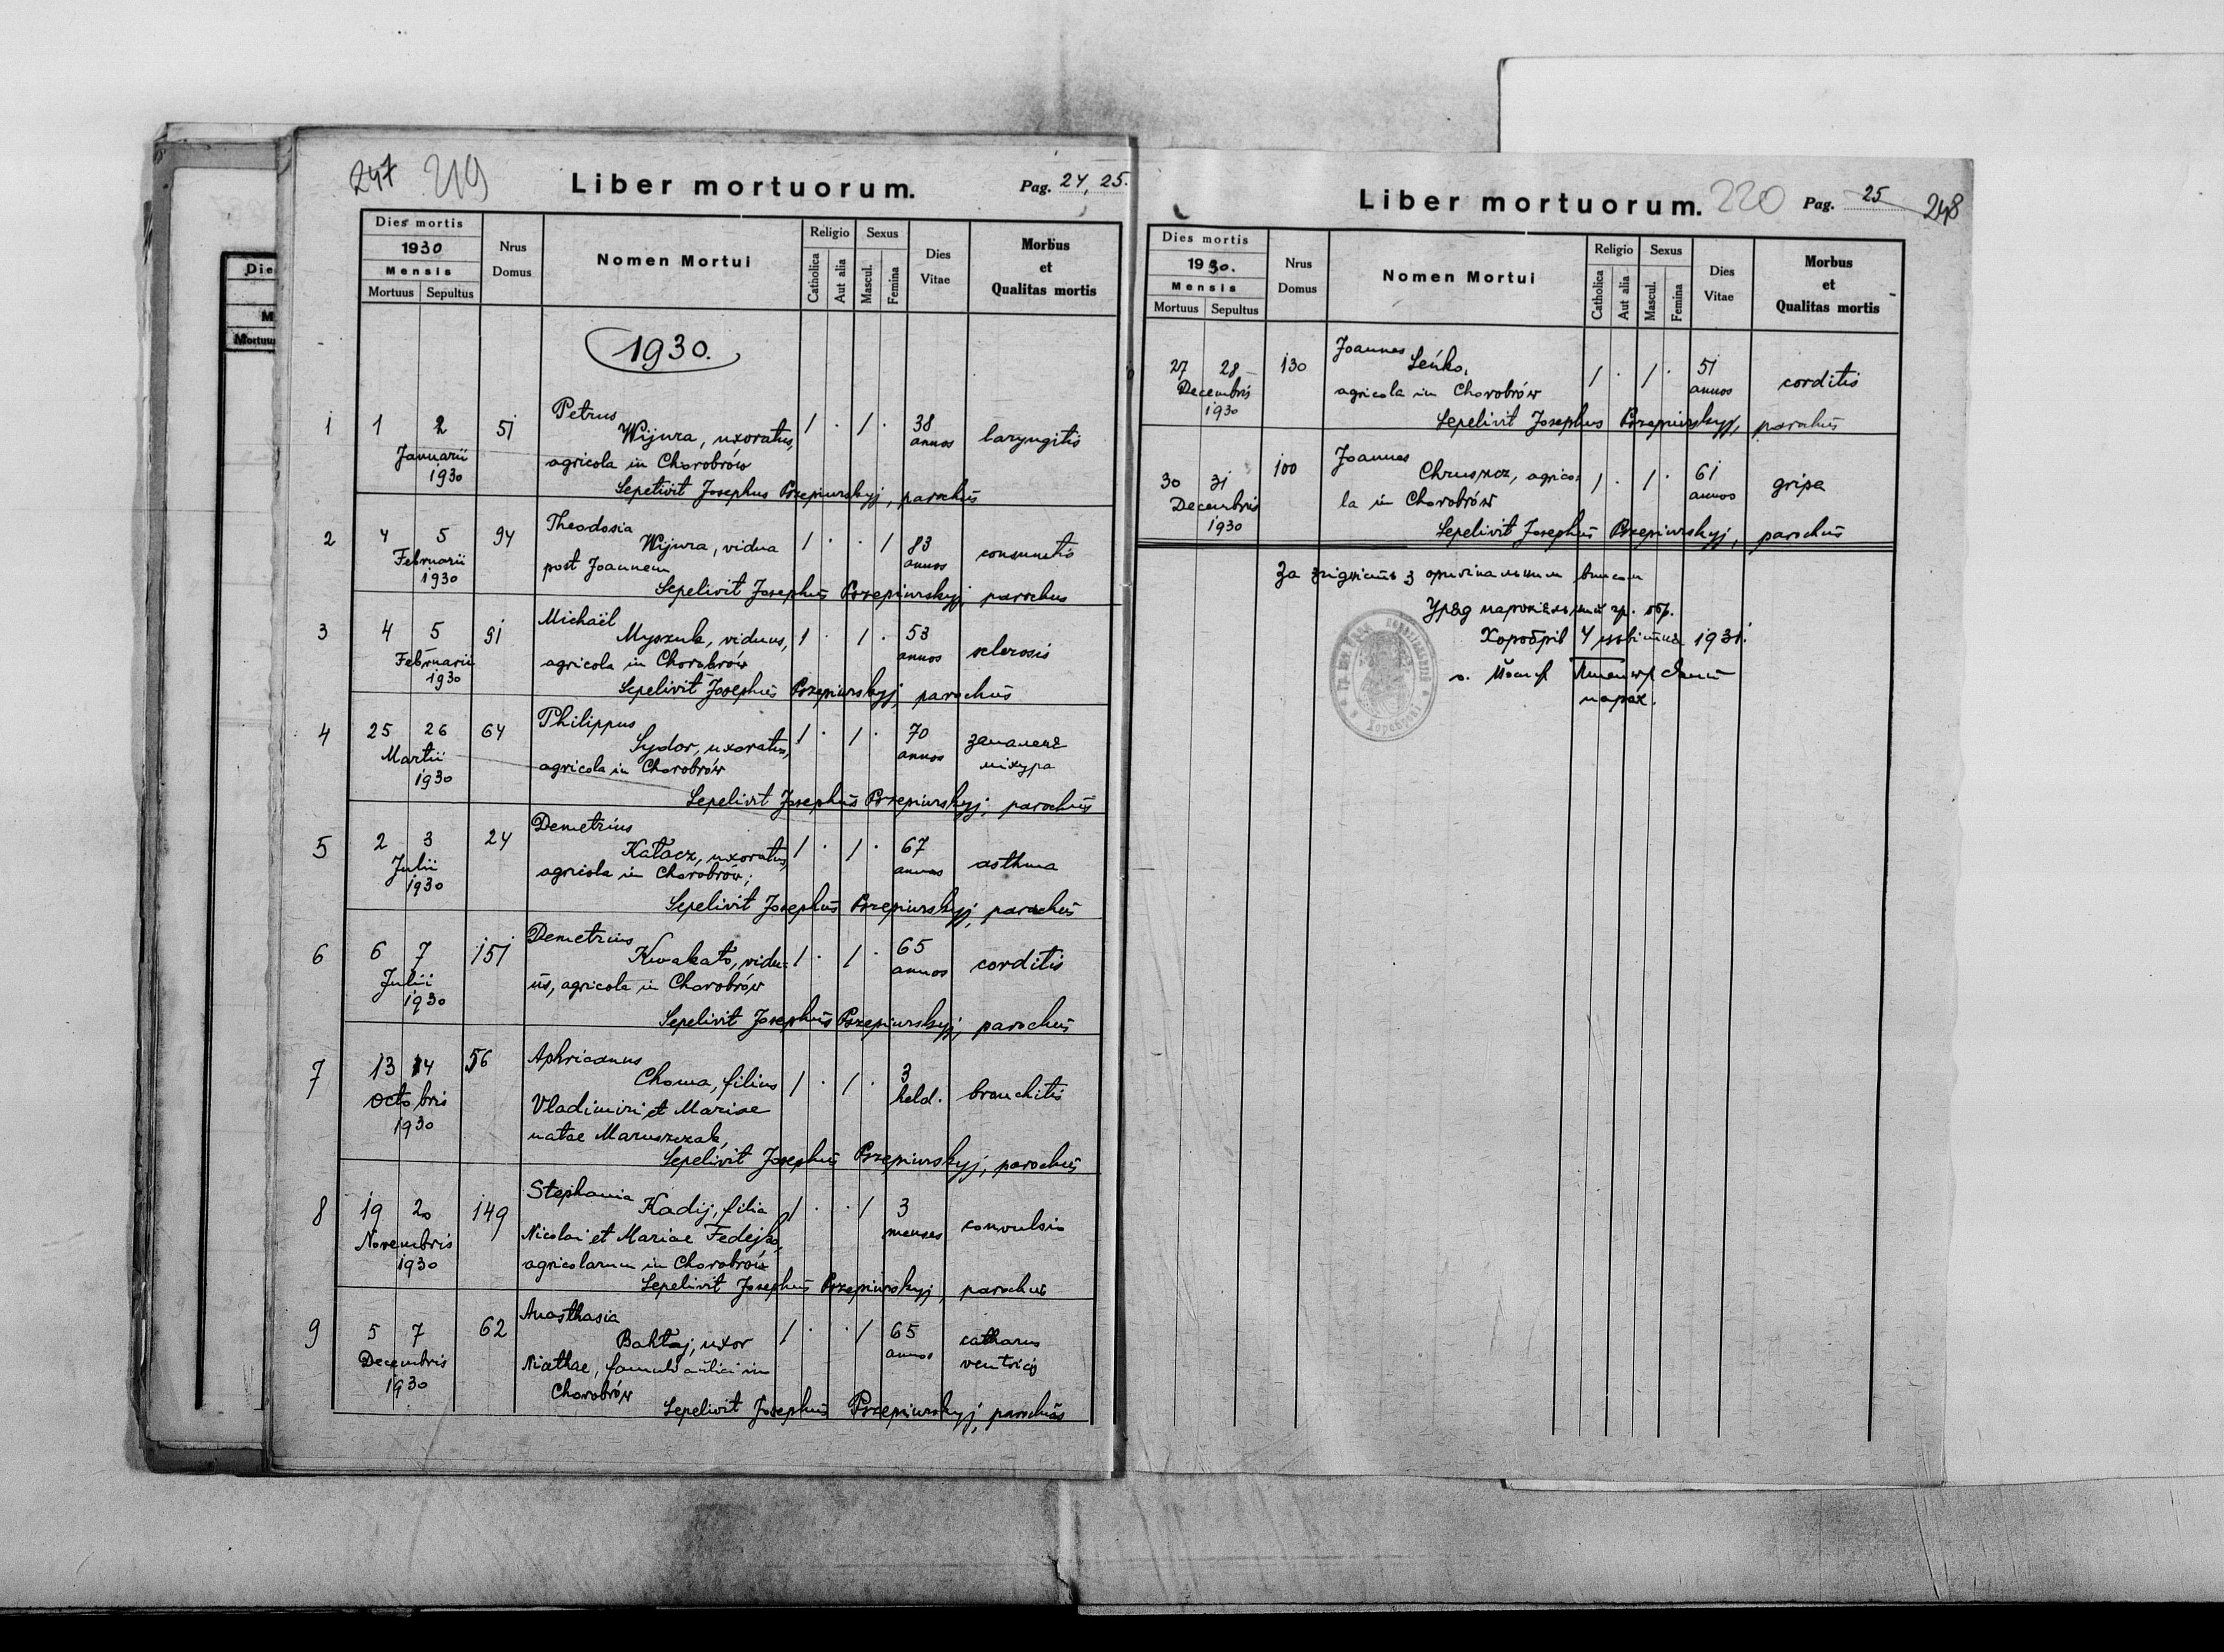 247 219
Liber mortuorum.
Pag. 24, 25.
Dies mortis
1930
Mensis
Mortuus Sepultus
Nrus Domus
Nomen Mortui
Religio
Catholica
Aut alia
Sexus
Mascul.
Femina
Dies Vitae
Morbus et Qualitas mortis
1930.
1 1 2 51 Petrus
Wijura, uxoratus, 1 · 1 · 38 annos laryngitis
Januarii 1930
agricola in Chorobrów
Sepelivit Josephus Pszepiurskyj, parochus
2 4 5 94 Theodosia
Wijura, vidua 1 · · 1 83 annos
Februarii 1930
post Joannem
Sepelivit Josephus Pszepiurskyj, parochus
3 4 5 91 Michaël
Myszuk, viduus, 1 · 1 · 53 annos sclerosis
Februarii 1930
agricola in Chorobrów
Sepelivit Josephus Pszepiurskyj, parochus
4 25 26 64 Philippus
Sydor, uxoratus, 1 · 1 · 70 annos запаленє міхура
Martii 1930
agricola in Chorobrów
Sepelivit Josephus Pszepiurskyj, parochus
5 2 3 24 Demetrius
Katacz, uxoratus, 1 · 1 · 67 annos asthma
Julii 1930
agricola in Chorobrów;
Sepelivit Josephus Pszepiurskyj, parochus
6 6 7 151 Demetrius
Kwakato, vidu- 1 · 1 · 65 annos corditis
Julii 1930
us, agricola in Chorobrów
Sepelivit Josephus Pszepiurskyj, parochus
7 13 14 56 Aphricanus
Choma, filius 1 · 1 · 3 hebd. bronchitis
Octobris 1930
Vladimiri et Mariae
natae Maruszczak,
Sepelivit Josephus Pszepiurskyj, parochus
8 19 20 149 Stephania
Kadij, filia 1 · · 1 3 menses convulsio
Novembris 1930
Nicolai et Mariae Fedejko,
agricolarum in Chorobrów
Sepelivit Josephus Pszepiurskyj, parochus
9 5 7 62 Anasthasia
Bahtaj, uxor 1 · · 1 65 annos catharus
Decembris 1930
famuli aulici in
Chorobrów
Sepelivit Josephus Pszepiurskyj, parochus
Liber mortuorum. 220
Pag. 25 248
Dies mortis
1930.
Mensis
Mortuus Sepultus
Nrus Domus
Nomen Mortui
Religio
Catholica
Aut alia
Sexus
Mascul.
Femina
Dies Vitae
Morbus et Qualitas mortis
27 28 130 Joannes
Seńko, 1 · 1 · 51 annos corditis
Decembris 1930
agricola in Chorobrów
Sepelivit Josephus Pszepiurskyj, parochus
30 31 100 Joannes
Chruszcz, agrico- 1 · 1 · 61 annos gripa
Decembris 1930
la in Chorobrów
Sepelivit Josephus Pszepiurskyj, parochus
За згідність з оригінальним
Уряд парохіяльний гр.
Хоробрів 4 1931.
о. Йосиф
парох.